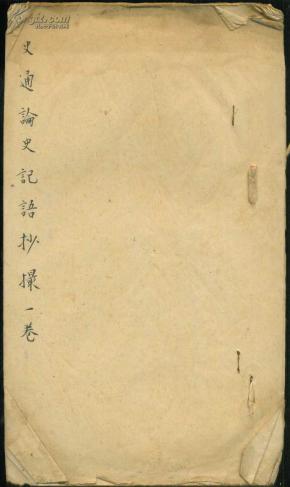 史通論史記語抄撮一卷